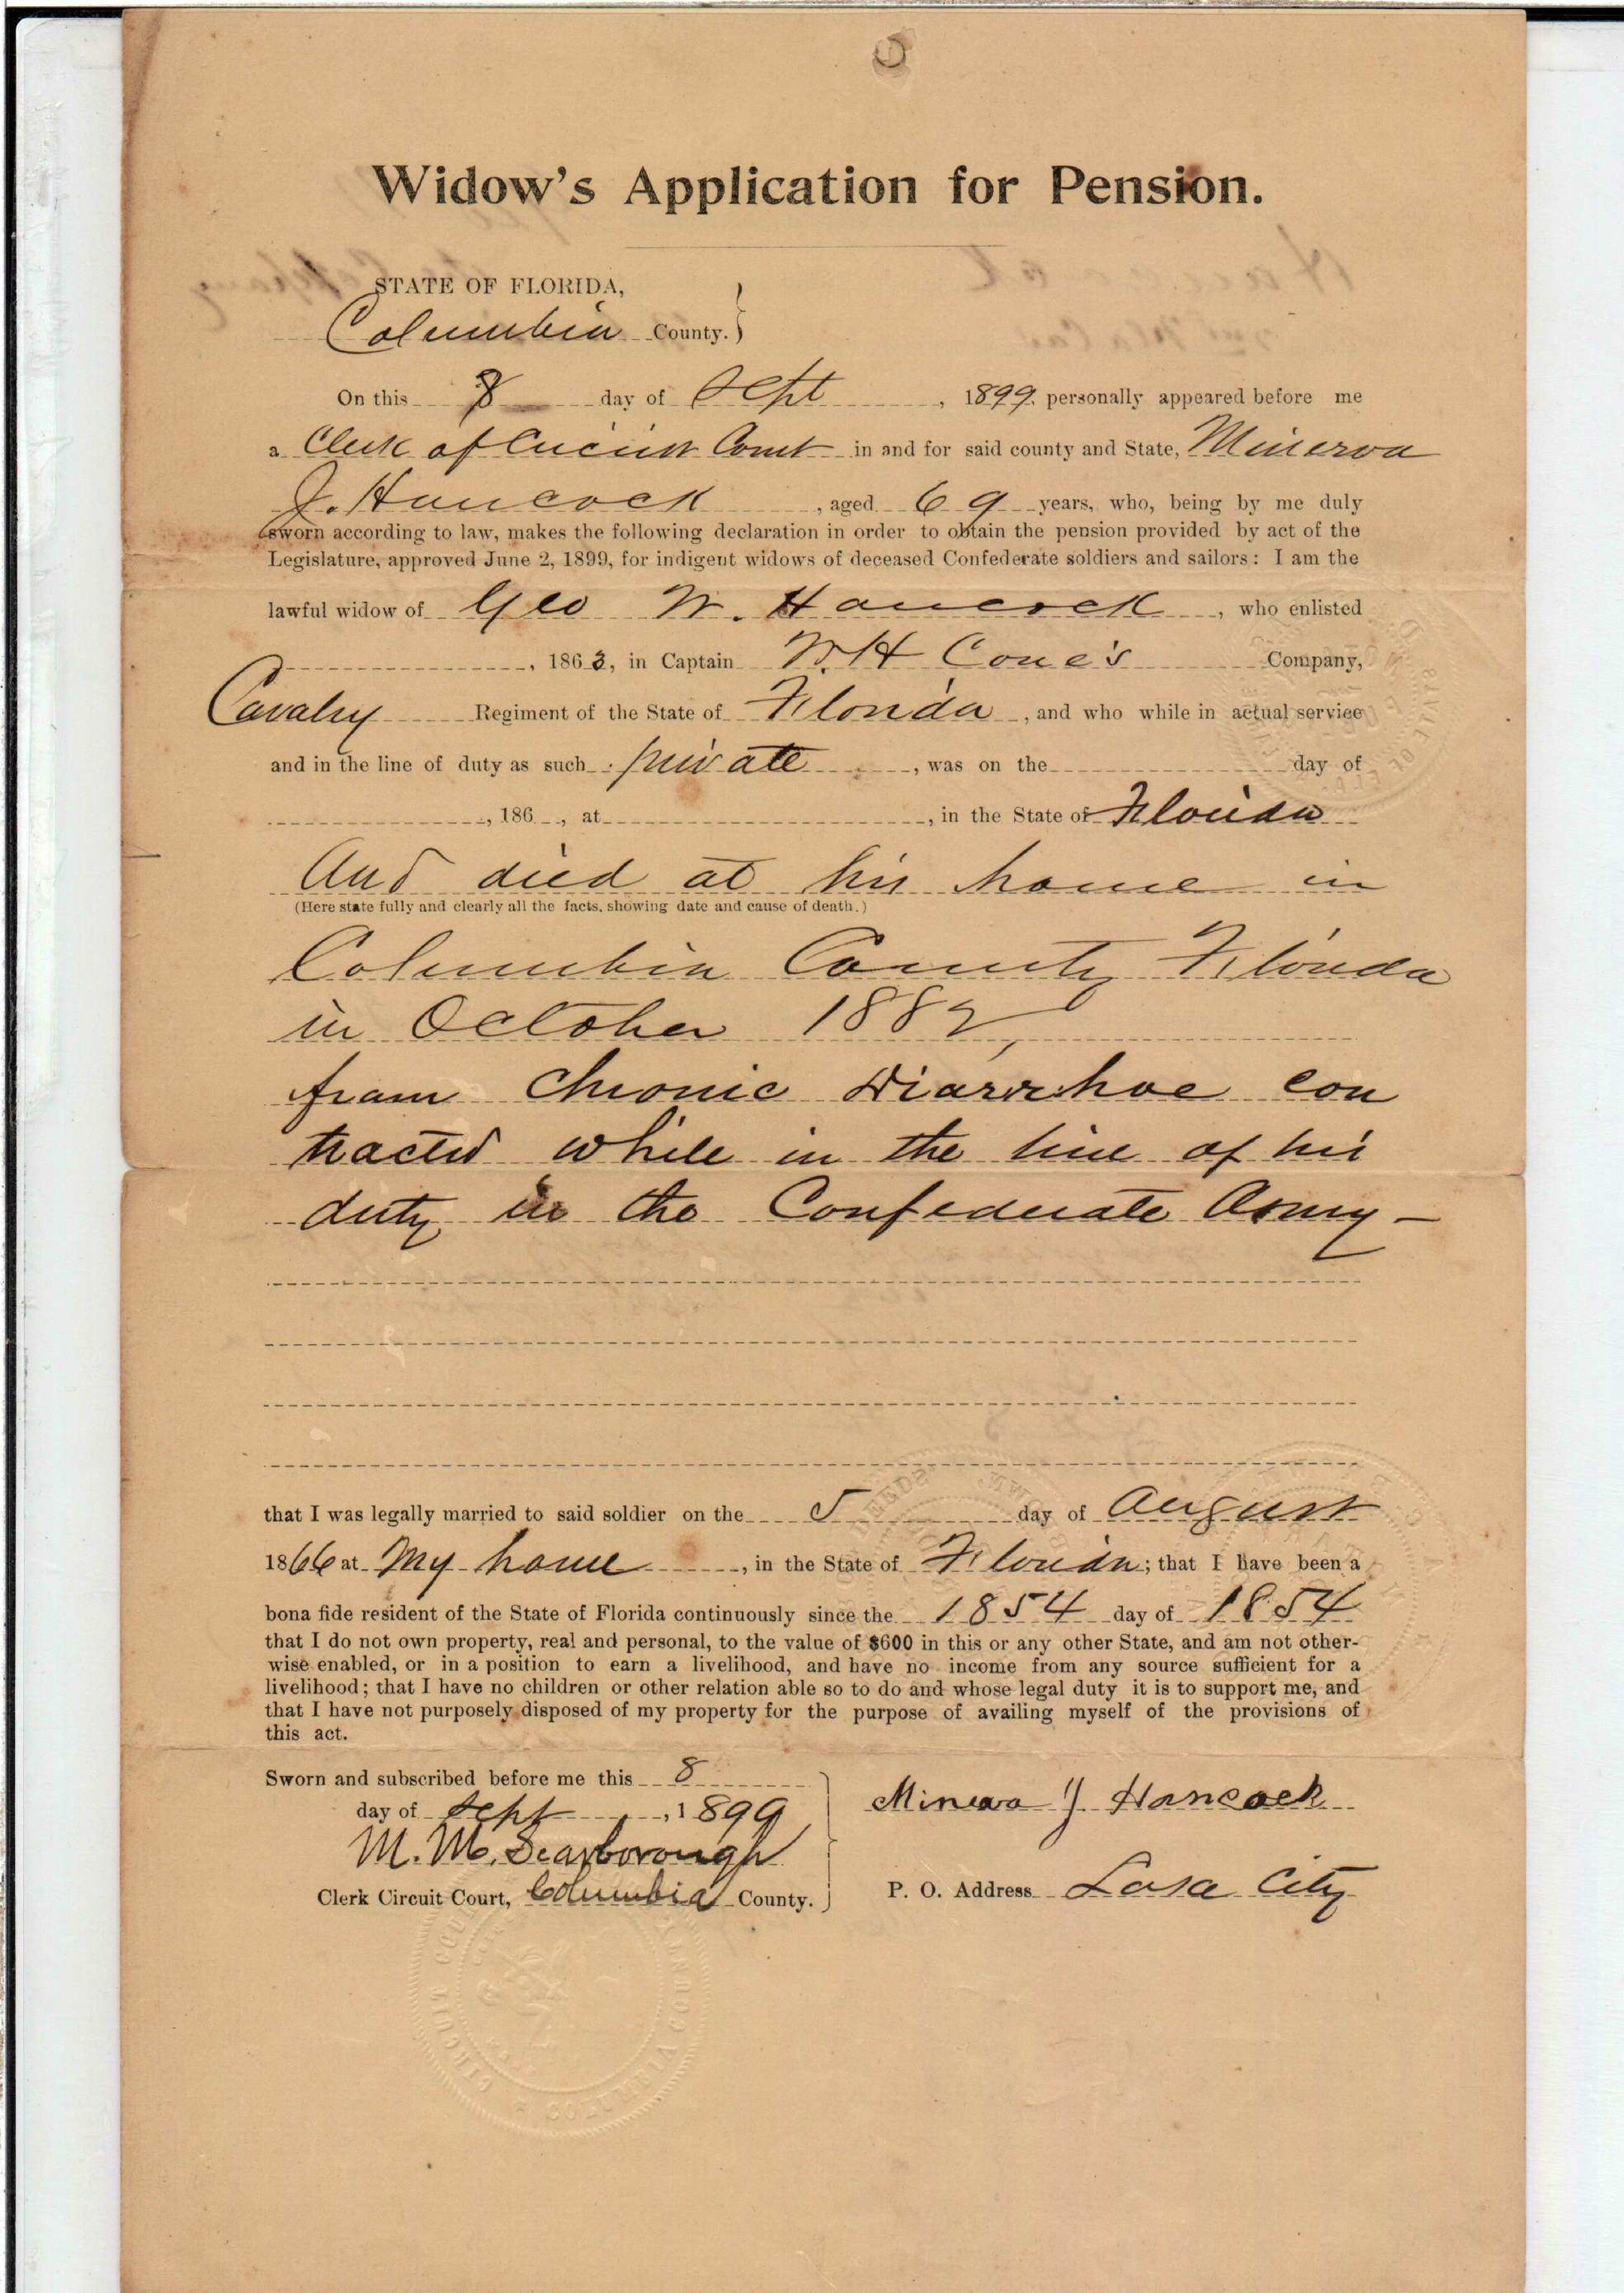 Widow's Application for Pension.
STATE OF FLORIDA,
Columbia County.
On this 8 day of Sept, 1899, personally appeared before me
a Clerk of Circuit Court in and for said county and State, Minerva
J. Hancock, aged 69 years, who, being by me duly
sworn according to law, makes the following declaration in order to obtain the pension provided by act of the
Legislature, approved June 2, 1899, for indigent widows of deceased Confederate soldiers and sailors: I am the
lawful widow of Geo W. Hancock, who enlisted
, 1863, in Captain W.H Cone's Company,
Cavalry Regiment of the State of Florida, and who while in actual service
and in the line of duty as such private, was on the day of
, 186 , at , in the State of Florida
And died at his home in
(Here state fully and clearly all the facts, showing date and cause of death.)
Columbia County Florida
in October 1882,
from Chronic Diarrhoe con
tracted while in the line of his
duty in the Confederate Army –
that I was legally married to said soldier on the 5 day of August
1866 at My home, in the State of Florida; that I have been a
bona fide resident of the State of Florida continuously since the 1854 day of 1854
that I do not own property, real and personal, to the value of $600 in this or any other State, and am not other-
wise enabled, or in a position to earn a livelihood, and have no income from any source sufficient for a
livelihood; that I have no children or other relation able so to do and whose legal duty it is to support me, and
that I have not purposely disposed of my property for the purpose of availing myself of the provisions of
this act.
Sworn and subscribed before me this 8
day of Sept, 1899
M. M. Scarborough
Clerk Circuit Court, Columbia County.
Minerva J. Hancock
P. O. Address Lasa City